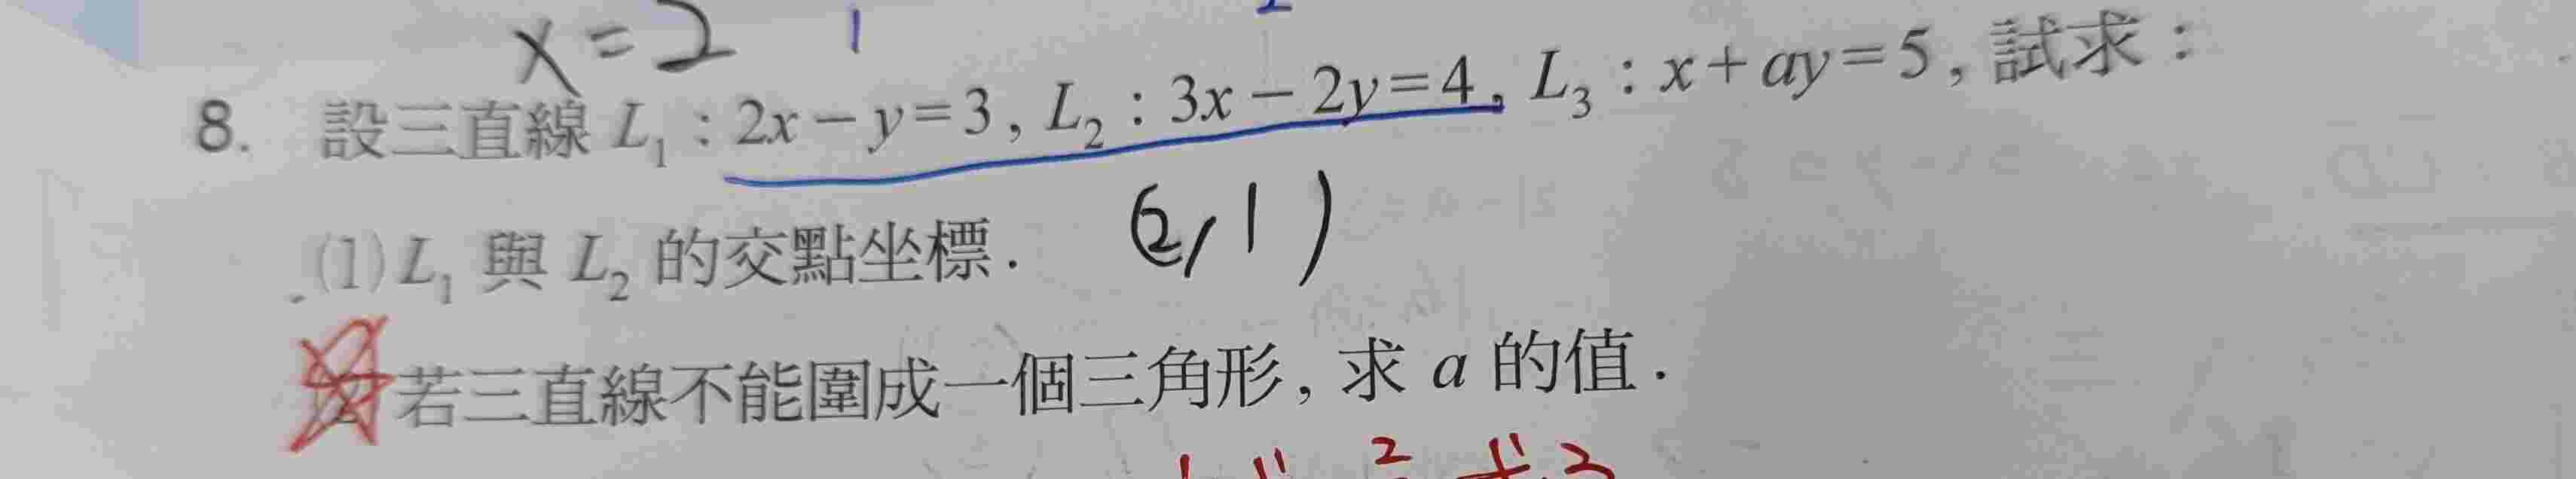 x=2 1
8. 設三直線 L₁：2x－y＝3, L₂：3x－2y＝4, L₃：x＋ay＝5, 試求：
(1) L₁ 與 L₂ 的交點坐標. (2,1)
若三直線不能圍成一個三角形, 求 a 的值.